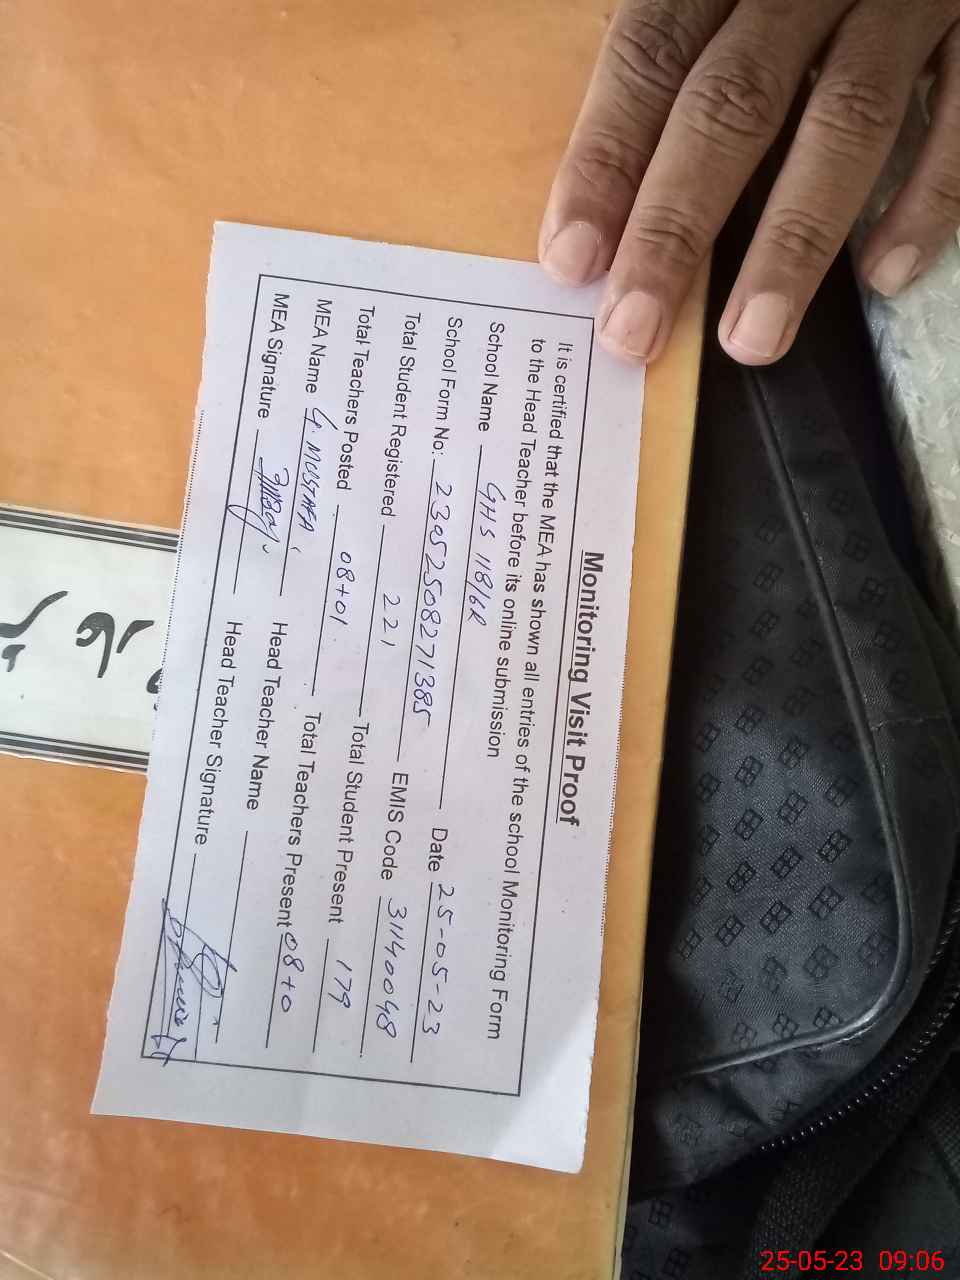 Monitoring Visit Proof
It is certified that the MEA has shown all entries of the school Monitoring Form
to the Head Teacher before its online submission
School Name GHS 118/6R
School Form No: 230525508271385 Date 25-05-23
Total Student Registered 221 EMIS Code 31140048
Total Teachers Posted 08+01 Total Student Present 179
MEA Name G. MUSTAFA Total Teachers Present 08+0
MEA Signature Head Teacher Name
Head Teacher Signature
25-05-23 09:06